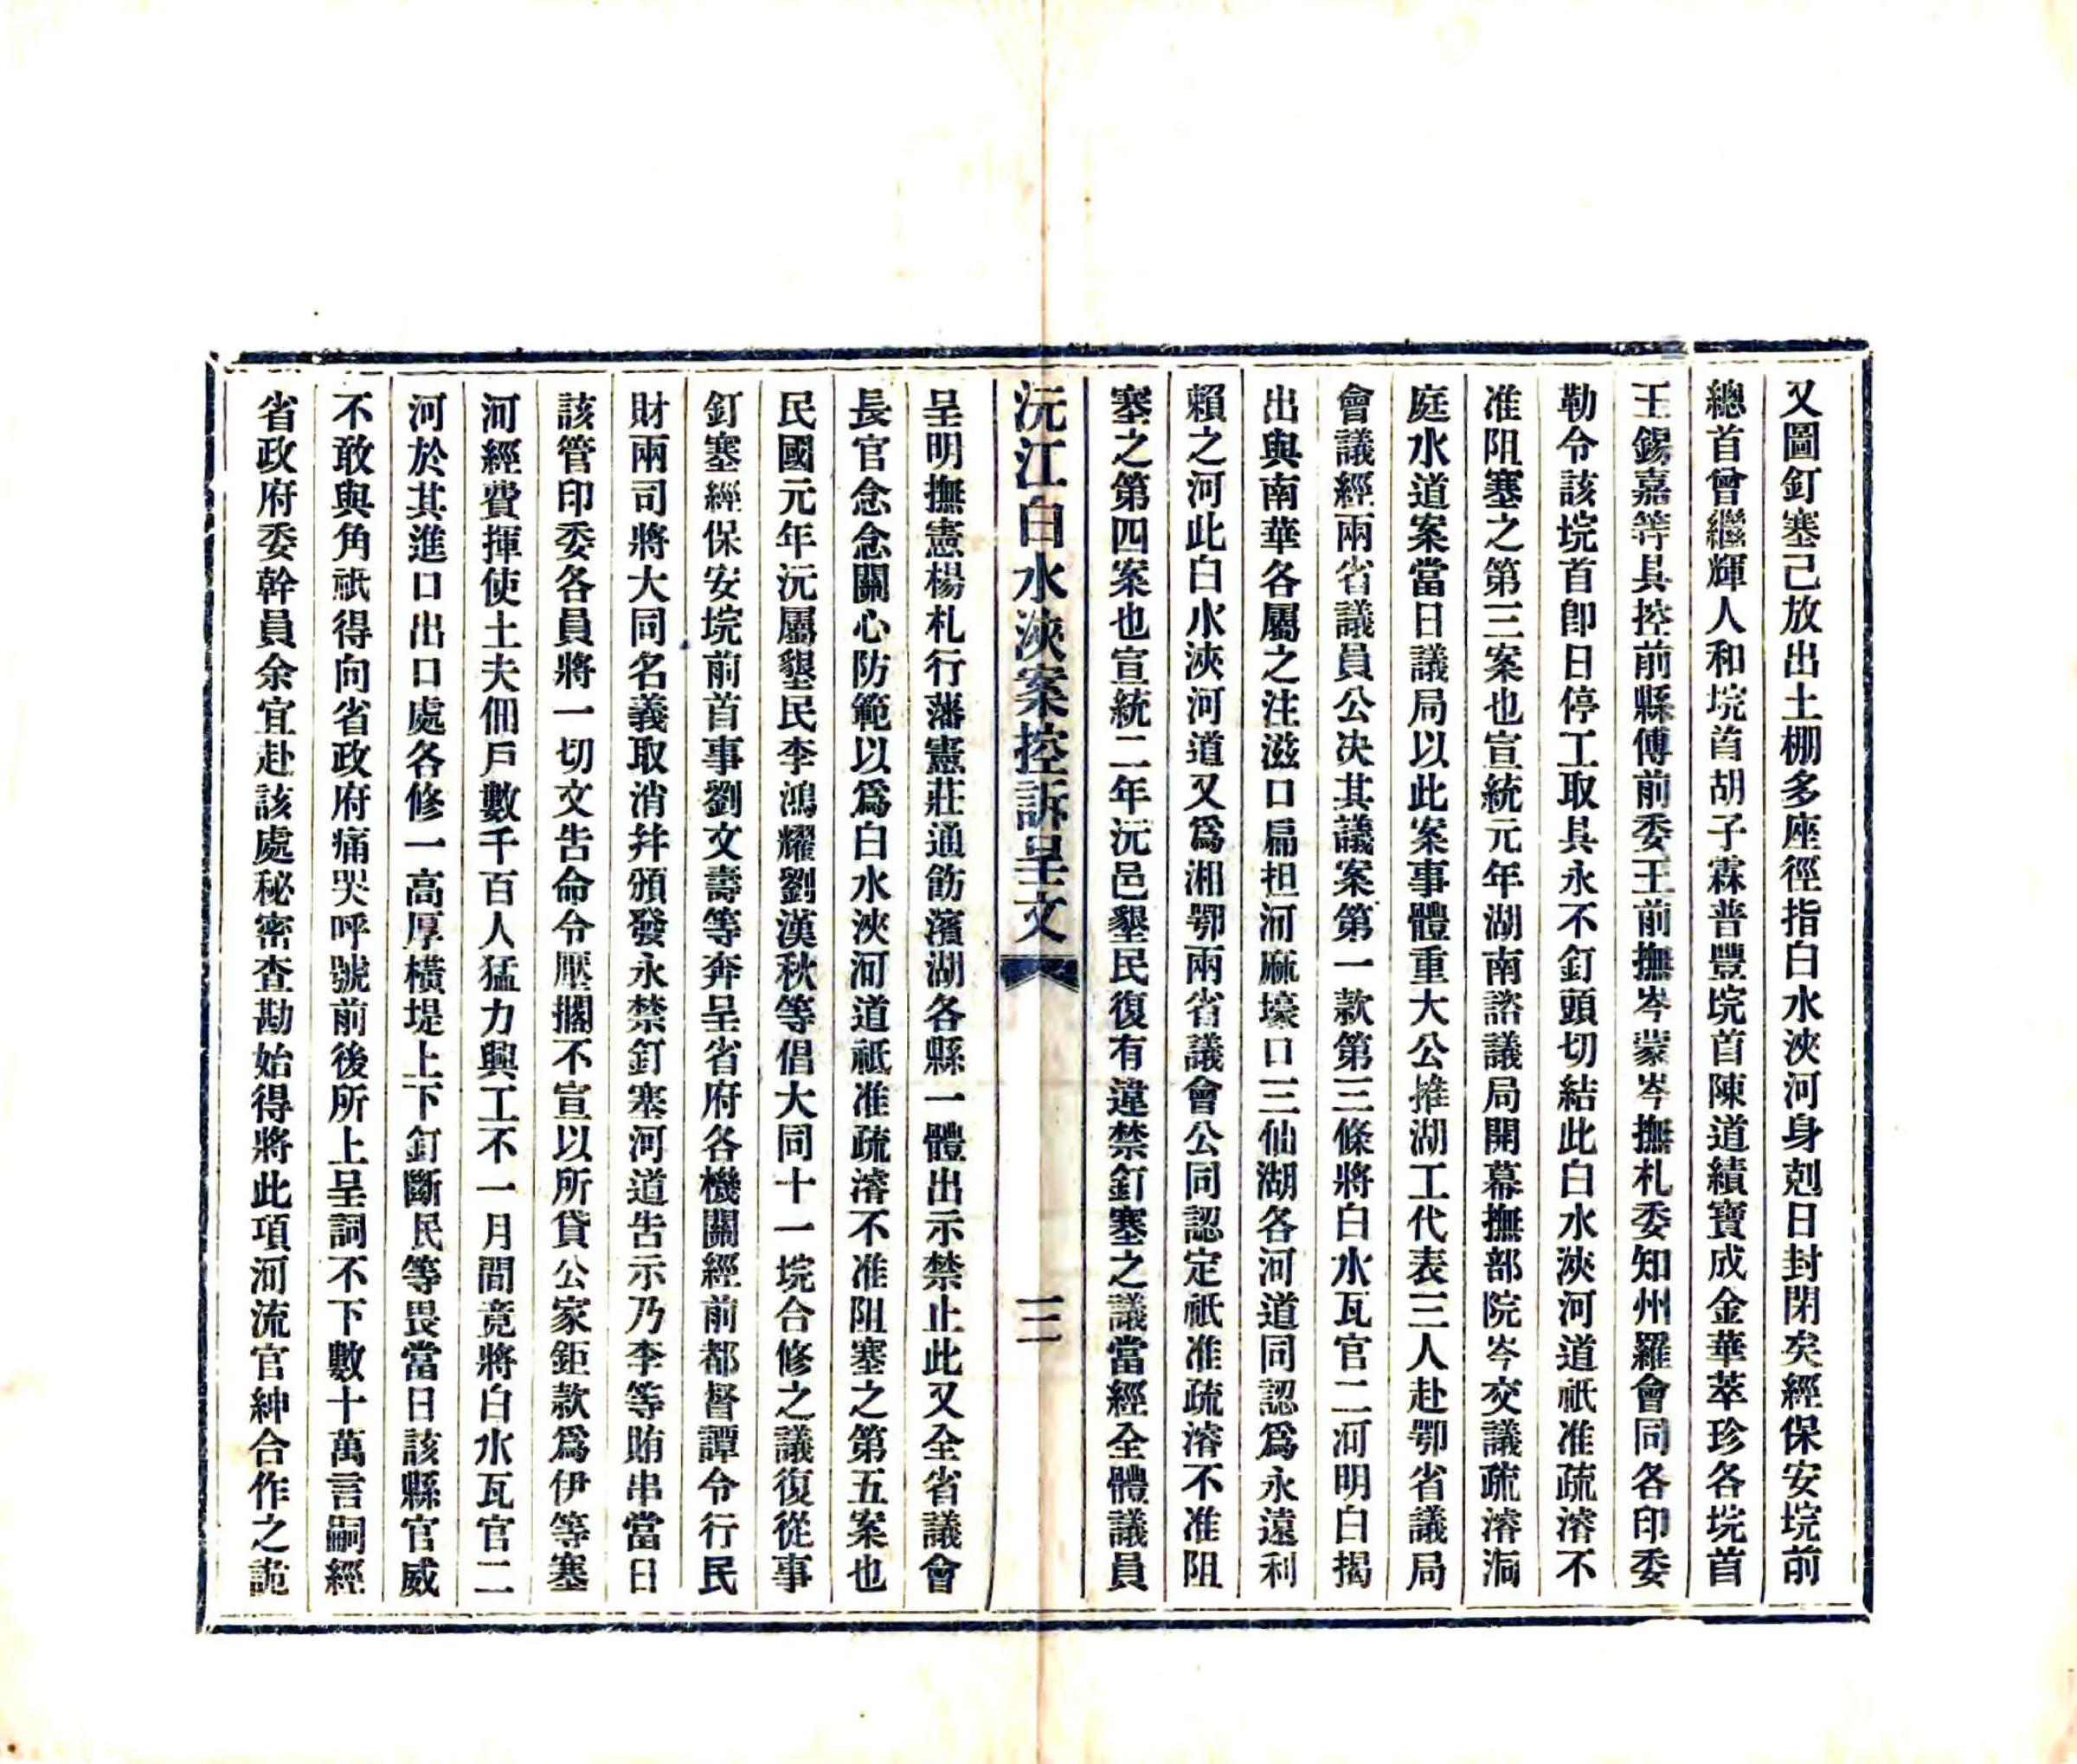 又圖釘塞己放出土棚多座徑指白水浹河身剋日封閉矣經保安垸前
總首曾繼輝人和垸首胡子霖普豐垸首陳道績寶成金華萃珍各垸首
王錫嘉等具控前縣傅前委王前撫岑蒙岑撫札委知州羅會同各印委
勒令該垸首卽日停工取具永不釘頭切結此白水浹河道祇准疏濬不
准阻塞之第三案也宣統元年湖南諮議局開幕撫部院岑交議疏濬洞
庭水道案當日議局以此案事體重大公推湖工代表三人赴鄂省議局
會議經兩省議員公决其議案第一款第三條將白水瓦官二河明白揭
出與南華各屬之注滋口扁担河麻壕口三仙湖各河道同認爲永遠利
賴之河此白水浹河道又爲湘鄂兩省議會公同認定祇准疏濬不准阻
塞之第四案也宣統二年沅邑墾民復有違禁釘塞之議當經全體議員
沅江白水浹案控訴呈文
三
呈明撫憲楊札行藩憲莊通飭濱湖各縣一體出示禁止此又全省議會
長官念念關心防範以爲白水浹河道祗准疏濬不准阻塞之第五案也
民國元年沅屬墾民李鴻耀劉漢秋等倡大同十一垸合修之議復從事
釘塞經保安垸前首事劉文壽等奔呈省府各機關經前都督譚令行民
財兩司將大同名義取消幷頒發永禁釘塞河道告示乃李等賄串當日
該管印委各員將一切文告命令壓擱不宣以所貸公家鉅款爲伊等塞
河經費揮使土夫佃戶數千百人猛力興工不一月間竟將白水瓦官二
河於其進口出口處各修一高厚橫堤上下釘斷民等畏當日該縣官威
不敢與角祇得向省政府痛哭呼號前後所上呈詞不下數十萬言嗣經
省政府委幹員余宜赴該處秘密查勘始得將此項河流官紳合作之詭